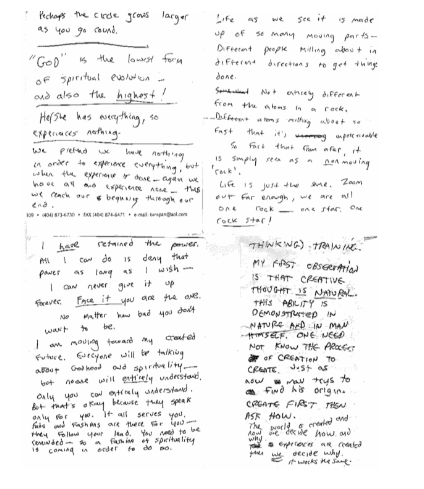 Perhaps the circle grows larger
as you go round.
"GOD" is the lowest form
of spiritual evolution —
and also the highest!
He/She has everything, so
experiences nothing.
We pretend we have nothing
in order to experience everything, but
when the experience is done — again we
have all and experience none — thus
we reach our & beginning through our
end.
109 • (404) 873-6730 • FAX (404) 874-6471 •
Life as we see it is made
up of so many moving parts —
Different people milling about in
different directions to get things
done.
Not entirely different
from the atoms in a rock.
Different atoms milling about so
fast that it's unperceivable
So fast that from afar, it
is simply seen as a non moving
'rock'.
Life is just the same. Zoom
out far enough, we are all
one rock — one star. One
rock star!
I have retained the power.
All I can do is deny that
power as long as I wish —
I can never give it up
forever. Face it you are the one.
No matter how bad you don't
want to be.
I am moving toward my created
future. Everyone will be talking
about Godhood and spirituality —
but noone will entirely understand.
only you can entirely understand.
But that's okay because they speak
only for you. It all serves you.
Fads and Fashions are there for you —
they follow your lead. You need to be
reminded — so a fashion of spirituality
is coming in order to do so.
THINKING) TRAINING.
MY FIRST OBSERVATION
IS THAT CREATIVE
THOUGHT IS NATURAL.
THIS ABILITY IS
DEMONSTRATED IN
NATURE AND IN MAN
HIMSELF. ONE NEED
NOT KNOW THE PROCESS
OF CREATION TO
CREATE. JUST AS
now man trys to
find his origin.
CREATE FIRST THEN
ASK HOW.
The world is created and
now we decide how and
why experiences are created
then we decide why.
it works the same.